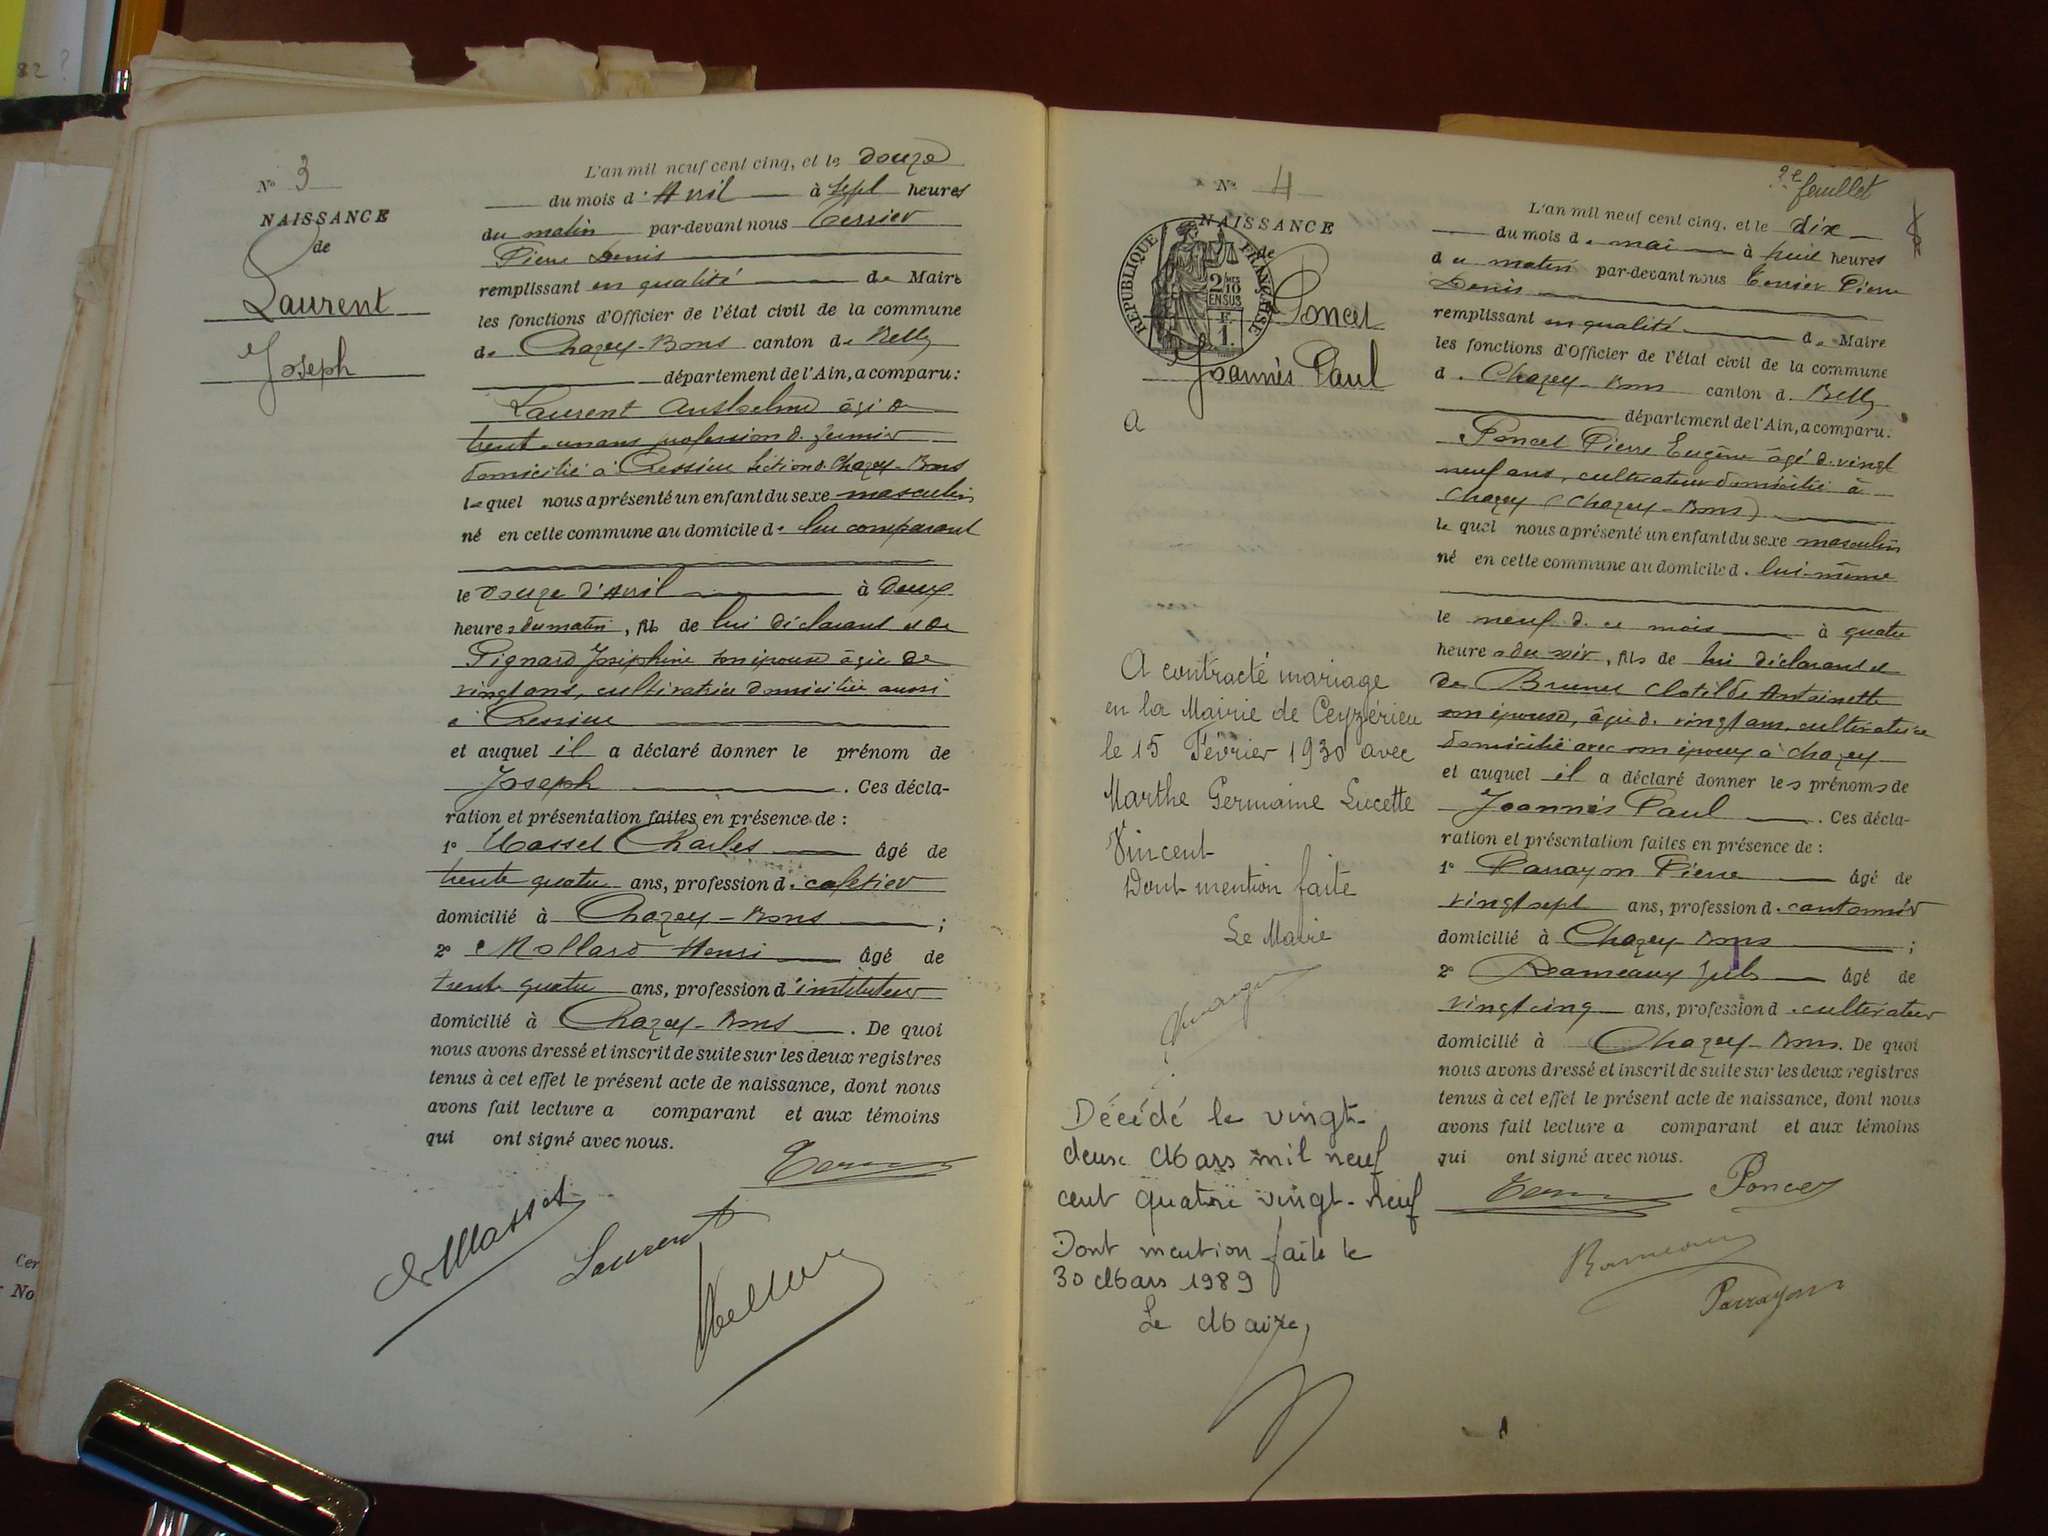 82 ?
Nº 3
NAISSANCE
de
Laurent
Joseph
L'an mil neuf cent cinq, et le douze
du mois d'Avril à sept heures
du matin par-devant nous Terrier
Pierre Denis
remplissant en qualité de Maire
les fonctions d'Officier de l'état civil de la commune
de Chazey-Bons canton de Belley
département de l'Ain, a comparu :
Laurent Anthelme âgé de
trente-un ans profession d. fermier
domicilié à Cressieu section d. Chazey-Bons
lequel nous a présenté un enfant du sexe masculin
né en cette commune au domicile de lui comparant
le douze d'Avril à deux
heures du matin, fils de lui déclarant et de
Pignard Joséphine son épouse âgée de
vingt ans, cultivatrice domiciliée aussi
à Cressieu
et auquel il a déclaré donner le prénom de
Joseph. Ces décla-
ration et présentation faites en présence de :
1º Masset Charles âgé de
trente quatre ans, profession de cafetier
domicilié à Chazey-Bons ;
2º Mollard Henri âgé de
trente quatre ans, profession d'instituteur
domicilié à Chazey-Bons. De quoi
nous avons dressé et inscrit de suite sur les deux registres
tenus à cet effet le présent acte de naissance, dont nous
avons fait lecture a comparant et aux témoins
qui ont signé avec nous.
Ch Masset
Laurent
Cer
No
2e feuillet
Nº 4
NAISSANCE
de
RÉPUBLIQUE FRANÇAISE
2/10
EN SUS
F.
1.
Poncet
Joannès Paul
a
L'an mil neuf cent cinq, et le dix
du mois de mai à huit heures
du matin par-devant nous Terrier Pierre
Denis
remplissant en qualité de Maire
les fonctions d'Officier de l'état civil de la commune
d. Chazey-Bons canton d. Belley
département de l'Ain, a comparu :
Poncet Pierre Eugène âgé d. vingt
neuf ans, cultivateur domicilié à
Chazey (Chazey-Bons)
lequel nous a présenté un enfant du sexe masculin
né en cette commune au domicile d. lui-même
le neuf d. ce mois à quatre
heures du soir, fils de lui déclarant et
de Brunet Clotilde Antoinette
son épouse, âgée d. vingt ans, cultivatrice
domiciliée avec son époux à Chazey
et auquel il a déclaré donner les prénoms de
Joannès Paul. Ces décla-
ration et présentation faites en présence de :
1º Parrayon Pierre âgé de
vingt sept ans, profession d. cantonnier
domicilié à Chazey Bons ;
2º Rameaux Jules âgé de
vingt cinq ans, profession d. cultivateur
domicilié à Chazey-Bons. De quoi
nous avons dressé et inscrit de suite sur les deux registres
tenus à cet effet le présent acte de naissance, dont nous
avons fait lecture a comparant et aux témoins
qui ont signé avec nous.
Poncet
Rameaux
Parrayon
A contracté mariage
en la Mairie de Ceyzérieu
le 15 Février 1930 avec
Marthe Germaine Lucette
Vincent
Dont mention faite
Le Maire
Décédé le vingt-
deux Mars mil neuf
cent quatre vingt-neuf
Dont mention faite le
30 Mars 1989
Le Maire,